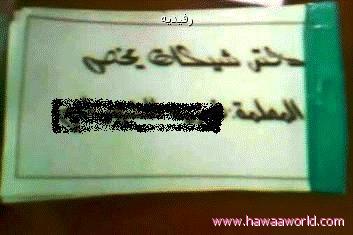 رفيديه
دفتر شيكات يختص
المعلمة
www.hawaaworld.com